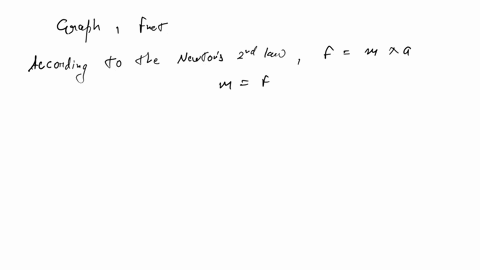 Graph, Fnet
According to the Newton's 2nd law, f = m × a
m = f